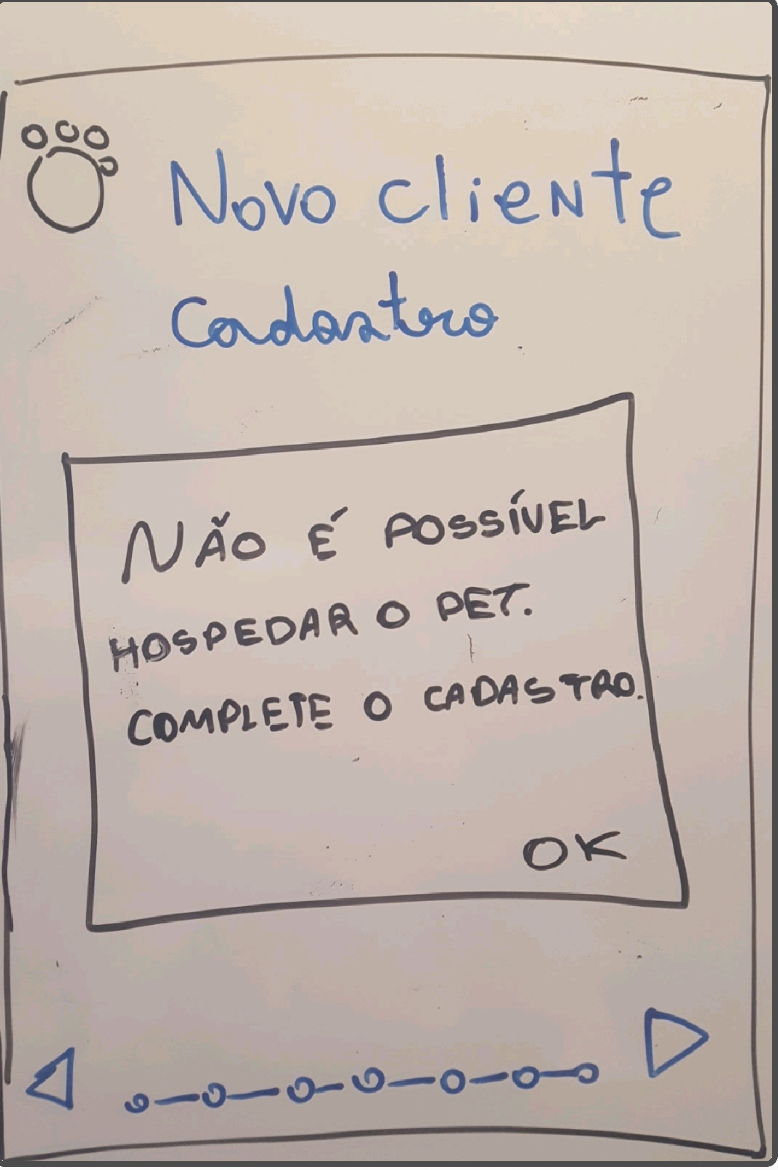 Novo cliente
Cadastro
NÃO É POSSÍVEL
HOSPEDAR O PET.
COMPLETE O CADASTRO.
OK